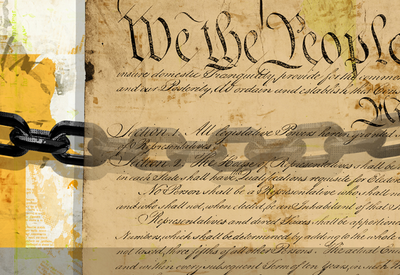 We the People
insure domestic Tranquility, provide for the common
and our Posterity, do ordain and establish this
Section 1. All legislative Powers herein granted
of Representatives
Section 2. The House of Representatives shall be
in each State shall have Qualifications requisite for Electors
No Person shall be a Representative who shall not
and who shall not, when elected, be an Inhabitant of that
Representatives and direct Taxes shall be apportioned
Numbers, which shall be determined by adding to the whole
not taxed, three fifths of all other Persons. The actual
and within every subsequent Term of ten Years, in such